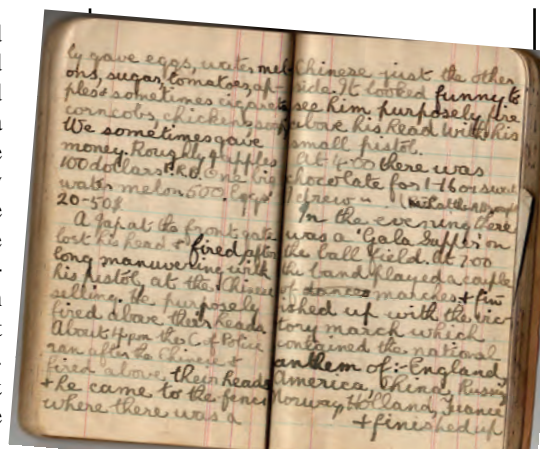 ly gave eggs, water mel-
ons, sugar, tomatoes, ap-
ples & sometimes cigarets
corncobs, chicken, soap
We sometimes gave
money. Roughly apples
100 dollars F.R.B. One big
water melon 500. Eggs
20-50$
A Jap at the front gate
lost his head & fired after
long manuvering with
his pistol, at the Chinese
selling. He purposely
fired above their heads
About 4 pm the C. of Police
ran after the Chinese &
fired above their heads
& he came to the fence
where there was a
Chinese just the other
side. It looked funny to
see him purposely fire
above his head with his
small pistol.
At 4.00 there was
chocolate for 1-16 or so
In the evening there
was a 'Gala Supper' on
the ball field. At 7.00
the band played a couple
of dances marches & fin
ished up with the vic-
tory march which
contained the national
anthem of :- England,
America, China, Russia
Norway, Holland, France
& finished up